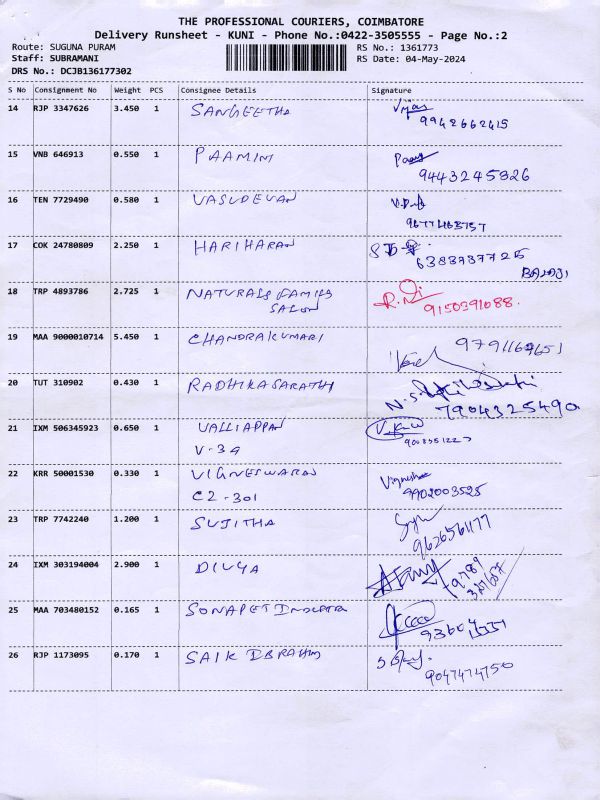 THE PROFESSIONAL COURIERS, COIMBATORE
Delivery Runsheet - KUNI - Phone No.:0422-3505555 - Page No.:2
Route: SUGUNA PURAM
RS No.: 1361773
Staff: SUBRAMANI
RS Date: 04-May-2024
DRS No.: DCJB136177302
S No Consignment No Weight PCS Consignee Details Signature
14 RJP 3347626 3.450 1 SANGEETHA Vijay
9942662415
15 VNB 646913 0.550 1 PAAMINI
9443245826
16 TEN 7729490 0.580 1 VASUDEVAN
9677463757
17 COK 24780809 2.250 1 HARIHARAN
6383737725
BALAJI
18 TRP 4893786 2.725 1 NATURALS FAMILY
SALON
9150391088.
19 MAA 9000010714 5.450 1 CHANDRAKUMARI
9791169651
20 TUT 310902 0.430 1 RADHIKASARATHY
7904325490
21 IXM 506345923 0.650 1 VALLIAPPAN
V-34
22 KRR 50001530 0.330 1 VIGNESWARAN
C2-301
9902003525
23 TRP 7742240 1.200 1 SUJITHA
9626561177
24 IXM 303194004 2.900 1 DIVYA
25 MAA 703480152 0.165 1 SONAPET
26 RJP 1173095 0.170 1 SAIK IBRAHIM
9047474750